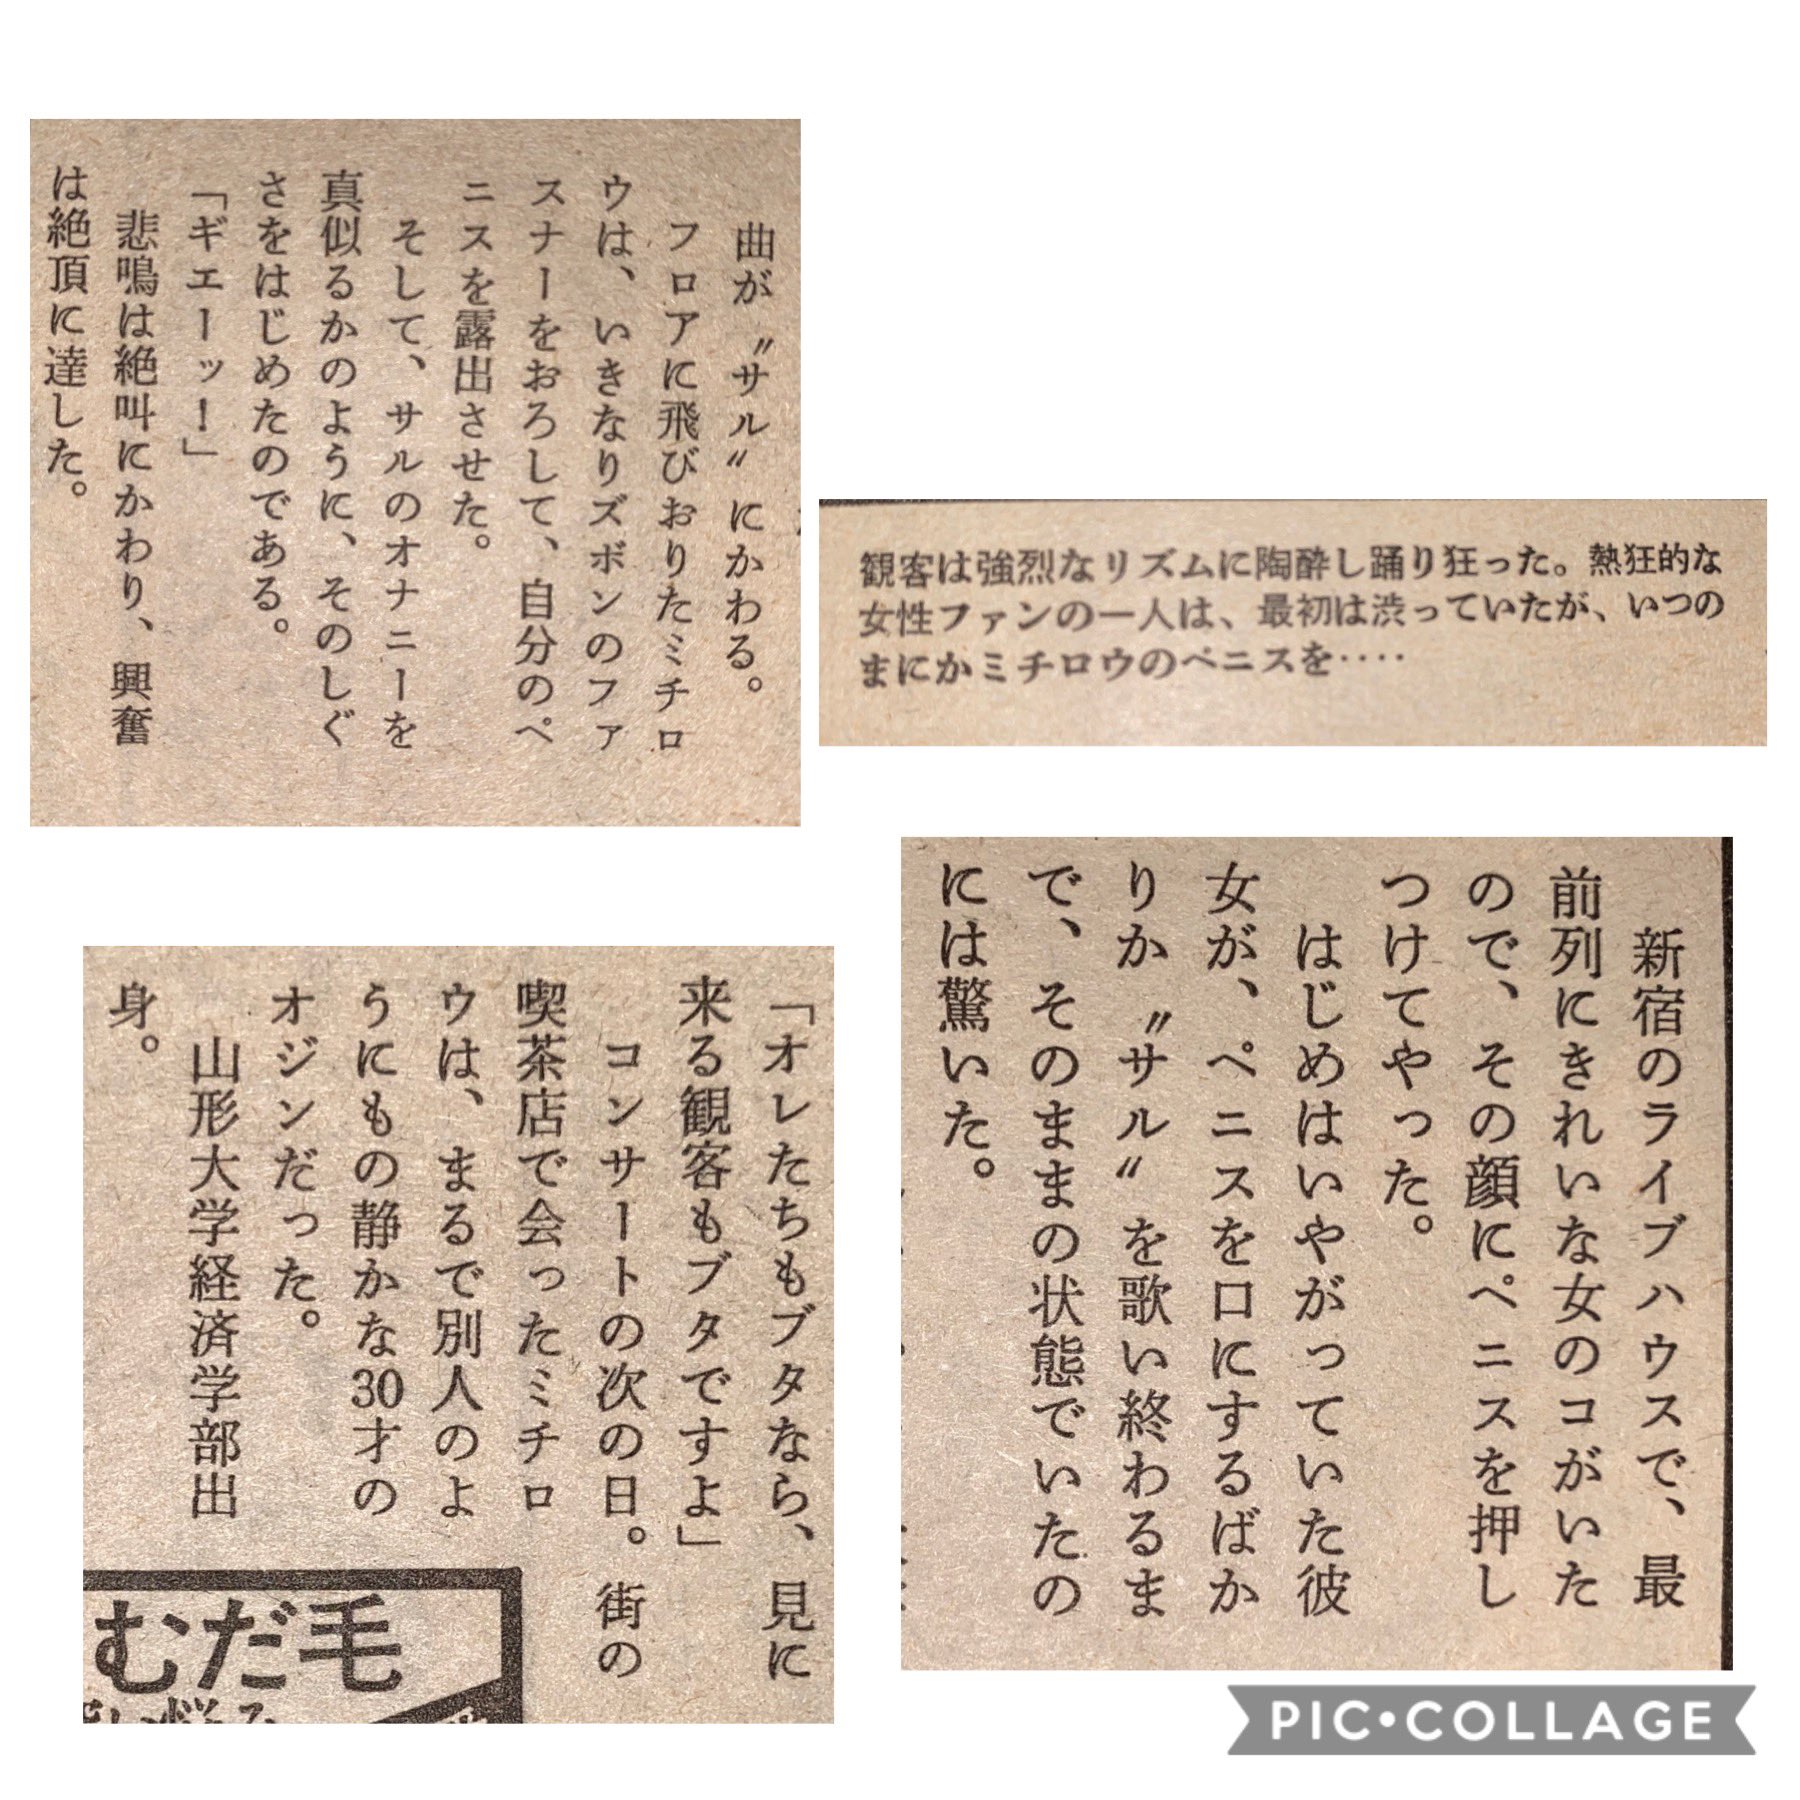 曲が〝サル〟にかわる。
フロアに飛びおりたミチロ
ウは、いきなりズボンのファ
スナーをおろして、自分のペ
ニスを露出させた。
そして、サルのオナニーを
真似るかのように、そのしぐ
さをはじめたのである。
「ギエーッ！」
悲鳴は絶叫にかわり、興奮
は絶頂に達した。
観客は強烈なリズムに陶酔し踊り狂った。熱狂的な
女性ファンの一人は、最初は渋っていたが、いつの
まにかミチロウのペニスを‥‥
新宿のライブハウスで、最
前列にきれいな女のコがいた
ので、その顔にペニスを押し
つけてやった。
はじめはいやがっていた彼
女が、ペニスを口にするばか
りか〝サル〟を歌い終わるま
で、そのままの状態でいたの
には驚いた。
「オレたちもブタなら、見に
来る観客もブタですよ」
コンサートの次の日。街の
喫茶店で会ったミチロ
ウは、まるで別人のよ
うにもの静かな30才の
オジンだった。
山形大学経済学部出
身。
むだ毛
PIC•COLLAGE